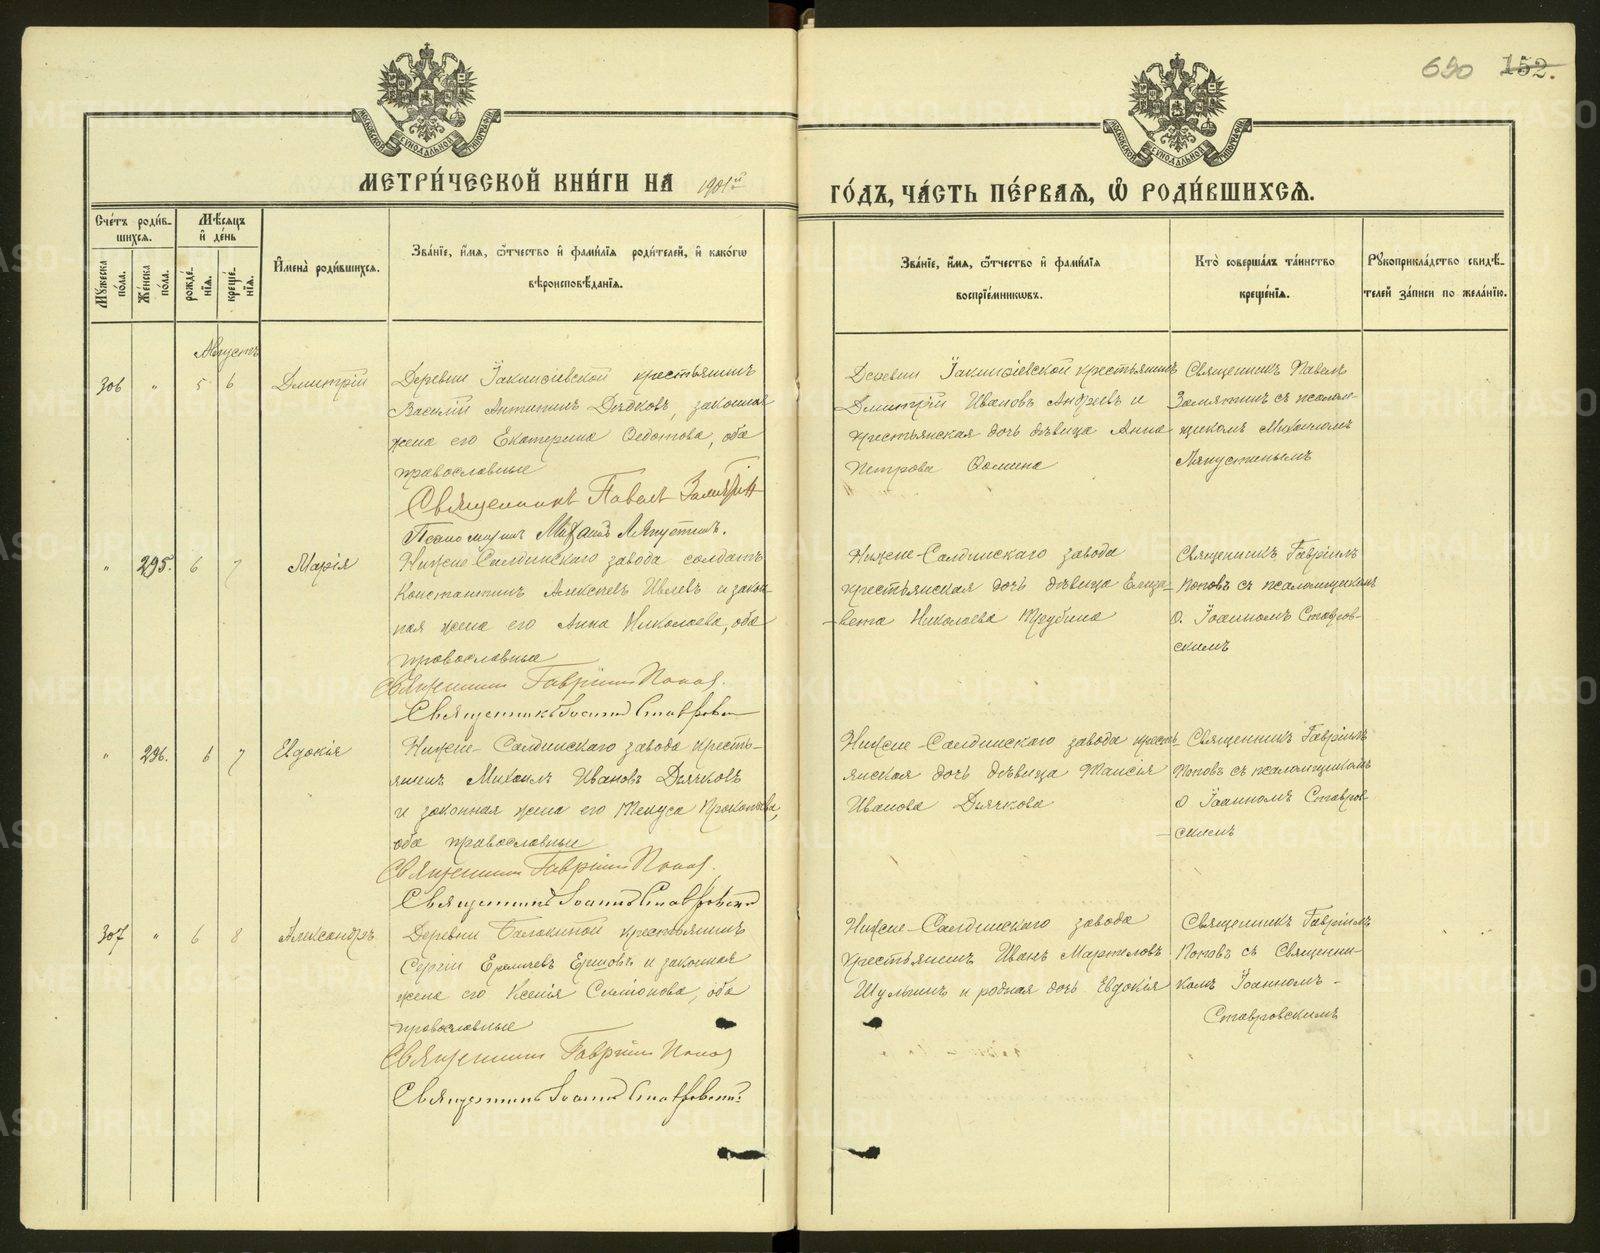 650 152.
МЕТРИ́ЧЕСКОЙ КНИ́ГИ НА 1901й
ГО́ДЪ, ЧА́СТЬ ПЕ́РВАѦ, Ѡ҆ РОДИ́ВШИХСѦ.
Сче́тъ роди́в-
шихся.
Мѣ́сяцъ
и҆ де́нь
Му́жеска
по́ла.
Же́нска
по́ла.
рожде́-
нїя.
креще́-
нїя.
И҆мена̀ роди́вшихся.
Зва́нїе, и҆́мя, ѻ҆́тчество и҆ фами́лїя роди́телей, и҆ како́гѡ
вѣроисповѣ́данїя.
Зва́нїе, и҆́мя, ѻ҆́тчество и҆ фами́лїя
воспрїе́мникѡвъ.
Кто̀ соверша́лъ та́инство
креще́нїя.
Рꙋкоприкла́дство свидѣ́-
телей за́писи по жела́нїю.
Августъ
306 " 5 6 Дмитрій
Деревни Іакинѳіевской крестьянинъ
Василій Антипинъ Дѣдковъ, законная
жена его Екатерина Ѳедотова, оба
православные
Священникъ Павелъ Замятин
Псаломщикъ Михаилъ Ляпустинъ.
Деревни Іакинѳіевской крестьянинъ
Дмитрій Ивановъ Андреевъ и
крестьянская дочь дѣвица Анна
Петрова Ѳомина
Священникъ Павелъ
Замятинъ съ псалом-
щикомъ Михаиломъ
Ляпустинымъ
" 295. 6 7 Марія
Нижне-Салдинскаго завода солдатъ
Константинъ Алексѣевъ Ивлевъ и закон-
ная жена его Анна Николаева, оба
православные
Священникъ Гавріилъ Попов.
Священникъ Іоаннъ Ставровскій
Нижне-Салдинскаго завода
крестьянская дочь дѣвица Елиза-
вета Николаева Трубина
Священникъ Гавріилъ
Поповъ съ псаломщикомъ
о. Іоанномъ Ставров-
скимъ
" 296. 6 7 Евдокія
Нижне-Салдинскаго завода кресть-
янинъ Михаилъ Ивановъ Дьячковъ
и законная жена его Текуса Прокопьева,
оба православные
Священникъ Гавріилъ Попов.
Священникъ Іоаннъ Ставровскій
Нижне-Салдинскаго завода кресть-
янская дочь дѣвица Таисія
Иванова Дьячкова
Священникъ Гавріилъ
Поповъ съ псаломщикомъ
о Іоанномъ Ставров-
скимъ
307 " 6 8 Александръ
Деревни Балакиной крестьянинъ
Сергій Еремѣевъ Ершовъ и законная
жена его Ксенія Симіонова, оба
православные
Священникъ Гавріилъ Попов
Священникъ Іоаннъ Ставровскій
Нижне-Салдинскаго завода
крестьянинъ Иванъ Мартиловъ
Шульгинъ и родная дочь Евдокія
Священникъ Гавріилъ
Поповъ съ Священни-
комъ Іоанномъ
Ставровскимъ